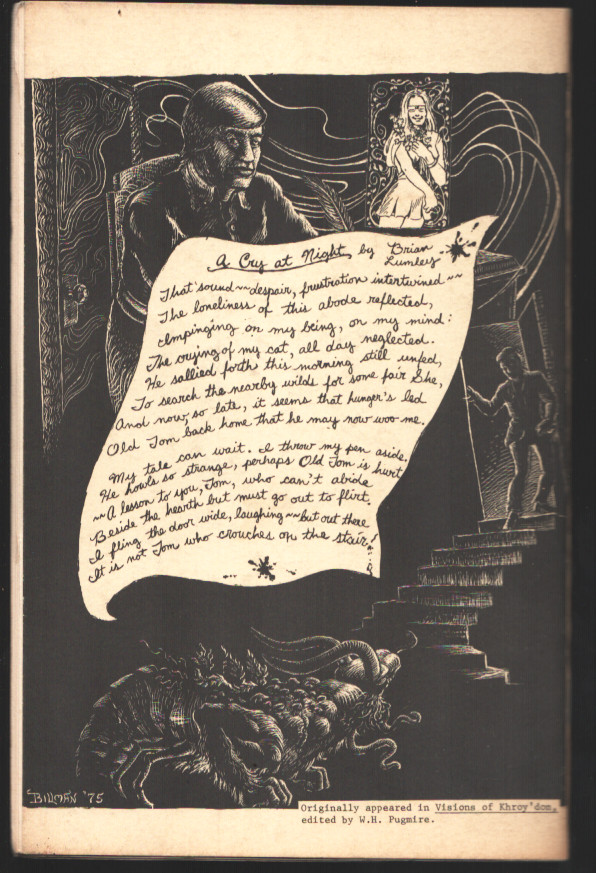 A Cry at Night by Brian Lumley
That sound~~despair, frustration intertwined~~
The loneliness of this abode reflected,
Impinging on my being, on my mind:
The crying of my cat, all day neglected.
He sallied forth this morning still unfed,
To search the nearby wilds for some fair She,
And now, so late, it seems that hunger's led
Old Tom back home that he may now woo me.
My tale can wait. I throw my pen aside.
He howls so strange, perhaps Old Tom is hurt
~A lesson to you, Tom, who can't abide
Beside the hearth but must go out to flirt.
I fling the door wide, laughing~~but out there
It is not Tom who crouches on the stair!
BILLMAN '75
Originally appeared in Visions of Khroy'don,
edited by W.H. Pugmire.